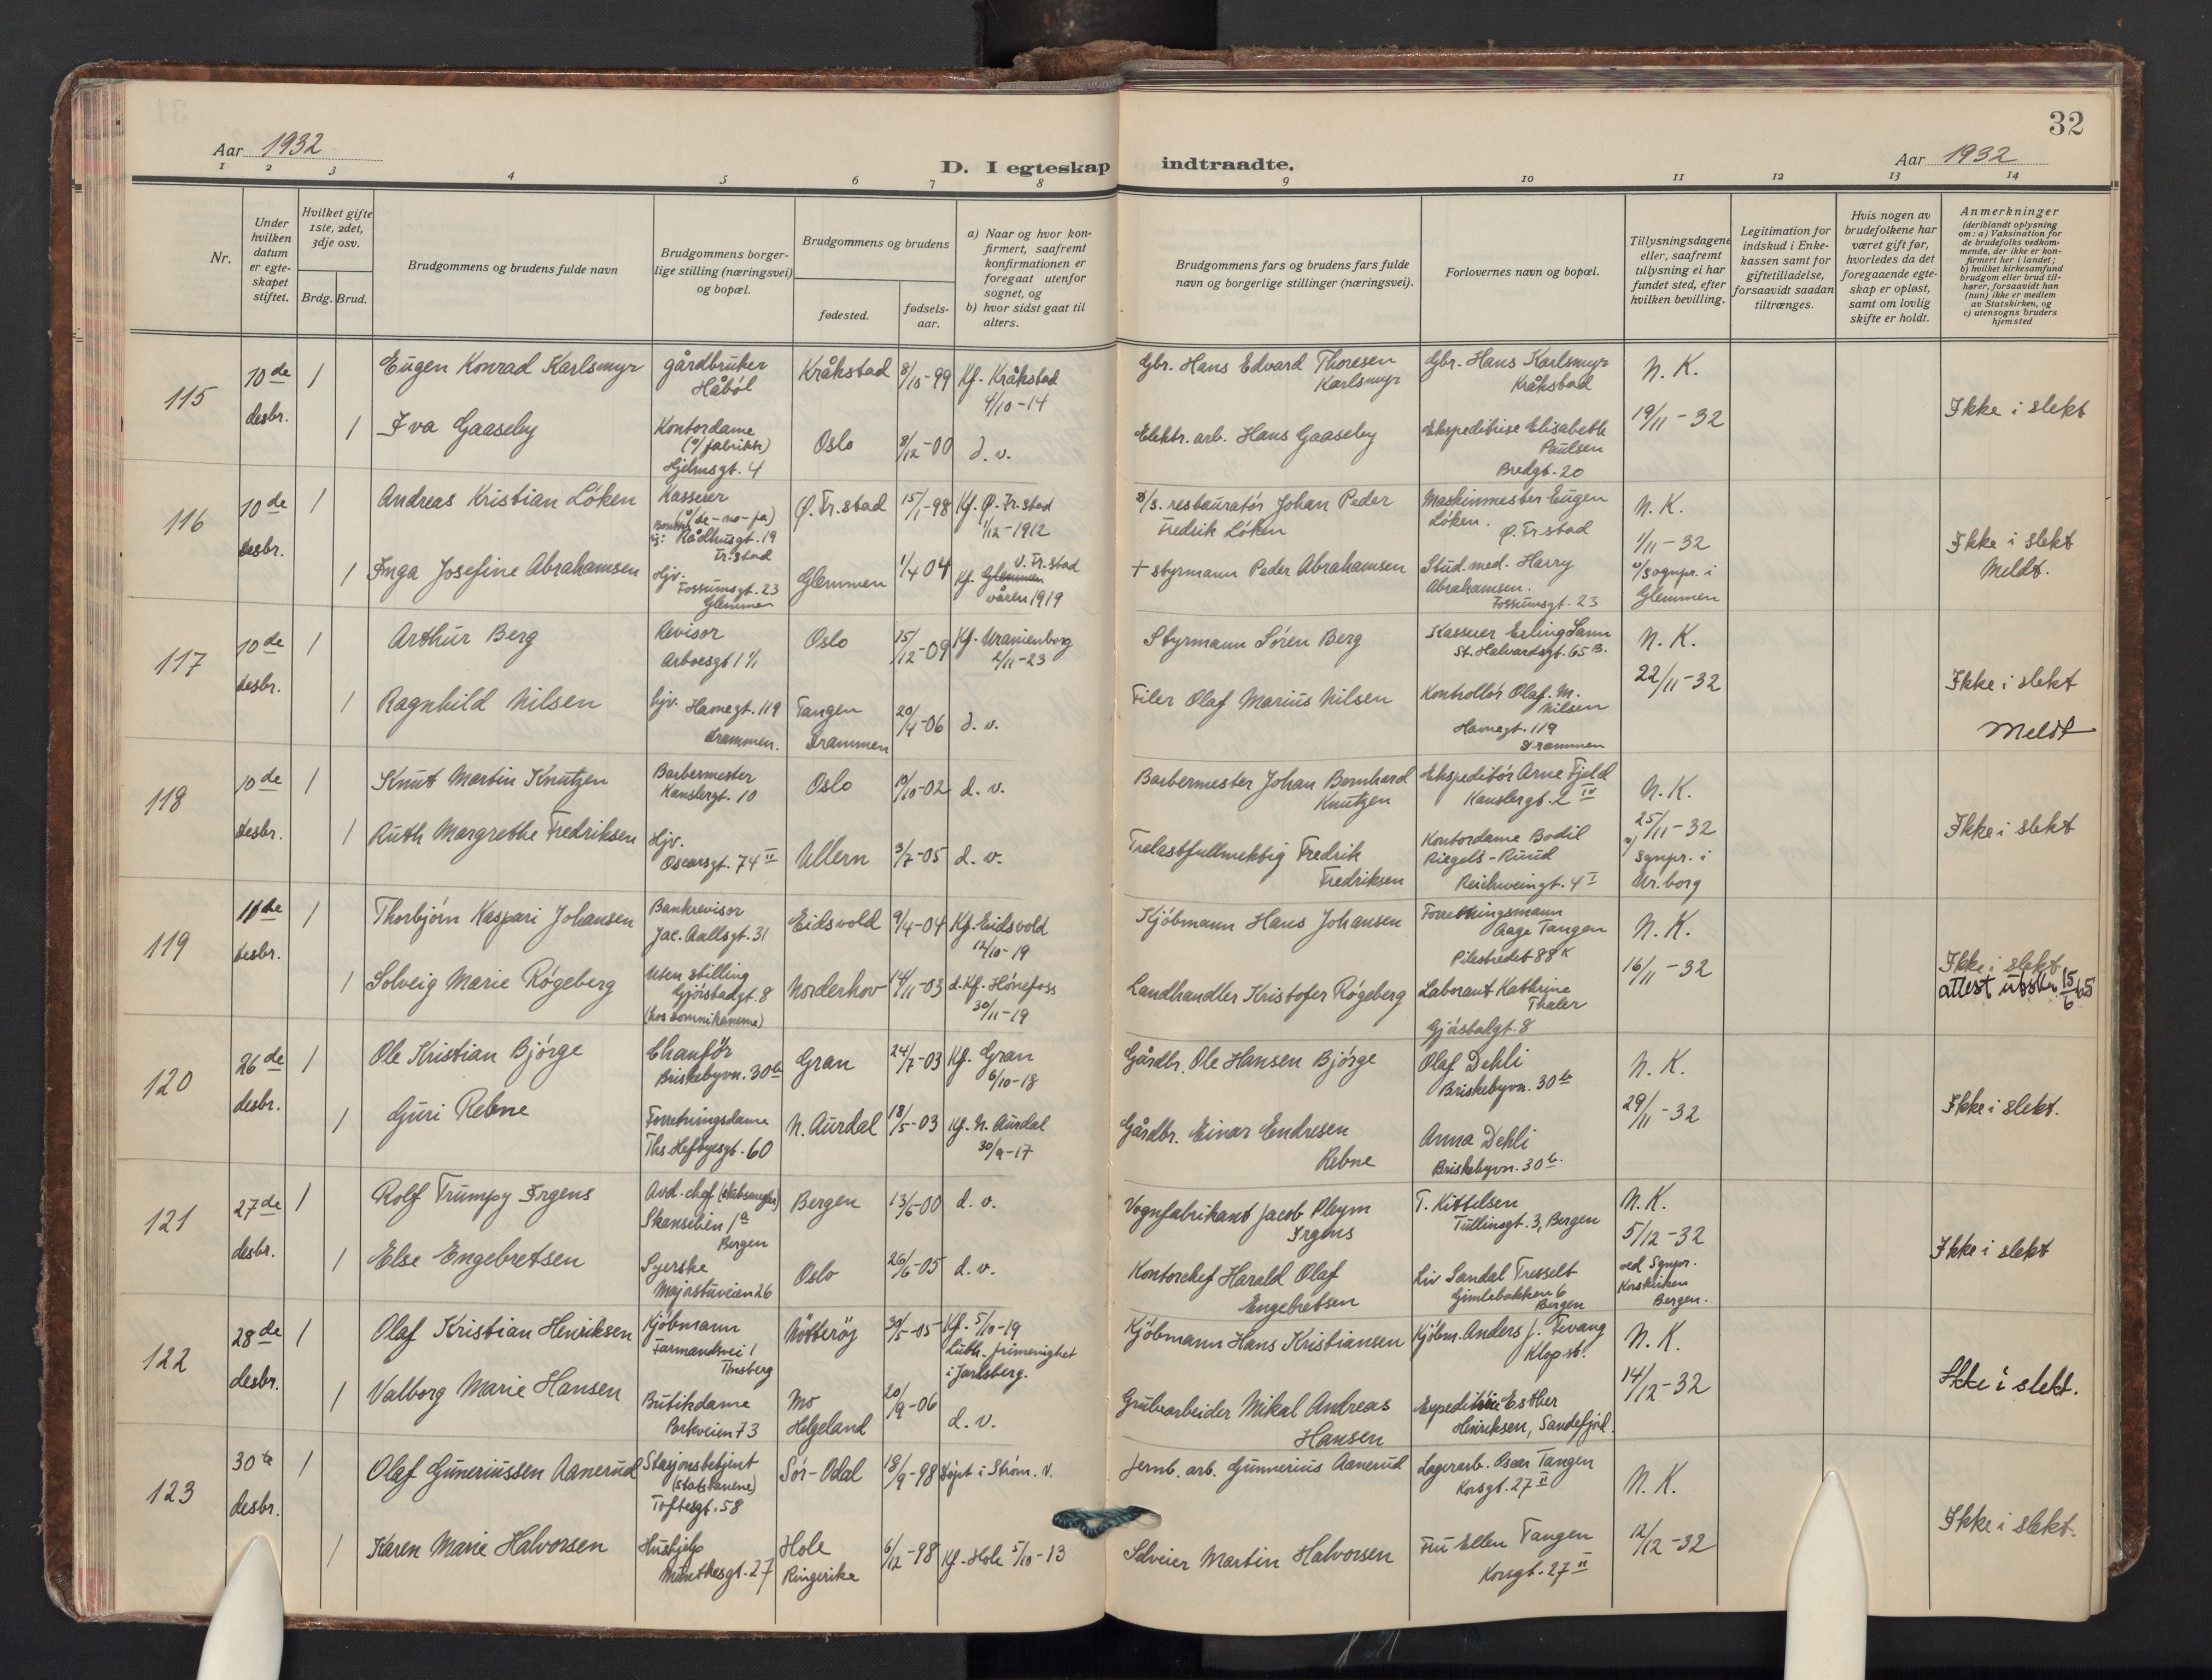 32
Aar 1932
D. I egteskap indtraadte.
Aar 1932
1 2 3 4 5 6 7 8 9 10 11 12 13 14
Nr.
Under hvilken datum er egteskapet stiftet.
Hvilket gifte 1ste, 2det, 3dje osv.
Brdg. Brud.
Brudgommens og brudens fulde navn
Brudgommens borgerlige stilling (næringsvei) og bopæl.
Brudgommens og brudens
fødested.
fødselsaar.
a) Naar og hvor konfirmert, saafremt konfirmationen er foregaat utenfor sognet, og
b) hvor sidst gaat til alters.
Brudgommens fars og brudens fars fulde navn og borgerlige stillinger (næringsvei).
Forlovernes navn og bopæl.
Tillysningsdagene eller, saafremt tillysning ei har fundet sted, efter hvilken bevilling.
Legitimation for indskud i Enkekassen samt for giftetilladelse, forsaavidt saadan tiltrænges.
Hvis nogen av brudefolkene har været gift før, hvorledes da det foregaaende egteskap er opløst, samt om lovlig skifte er holdt.
Anmerkninger
(deriblandt oplysning om: a) Vaksination for de brudefolks vedkommende, der ikke er konfirmert her i landet; b) hvilket kirkesamfund brudgom eller brud tilhører, forsaavidt han (hun) ikke er medlem av Statskirken, og c) utensogns bruders hjemsted
115 10de desbr. 1 Eugen Konrad Karlsmyr gårdbruker Håbøl Kråkstad 8/10-99 Kf. Kråkstad 4/10-14 Gbr. Hans Edvard Thoresen Karlsmyr Gbr. Hans Karlsmyr Kråkstad N. K. 19/11-32 Ikke i slekt
1 Iva Gaaseby Kontordame (i/fabrikk) Hjelmsgt. 4 Oslo 8/12-00 d. v. Elektr. arb. Hans Gaaseby Ekspeditrise Elisabeth Paulsen Bredgt. 20
116 10de desbr. 1 Andreas Kristian Løken Kasserer (i/de-no-fa) Rådhusgt. 19 Fr.stad Ø. Fr.stad 15/1-98 Kf. Ø. Fr.stad 1/12-1912 restauratør Johan Peder Fredrik Løken Maskinmester Eugen Løken. Ø. Fr.stad N. K. 1/11-32 v/sognpr. i Glemmen Ikke i slekt Meldt.
1 Inga Josefine Abrahamsen Hjv. Fossumsgt. 23 Glemmen Glemmen 1/4 04 Kf. Glemmen V. Fr.stad våren 1919 + styrmann Peder Abrahamsen Stud. med. Harry Abrahamsen. Fossumsgt. 23
117 10de desbr. 1 Arthur Berg Revisor Arboesgt 1 Oslo 15/12-09 Kf. Uranienborg 2/11-23 Styrmann Søren Berg Kasserer Erling Sann St. Halvardsgt. 65 B. N. K. 22/11-32 Ikke i slekt Meldt
1 Ragnhild Nilsen Hjv. Havnegt. 119 Drammen. Tangen Drammen 20/4-06 d. v. Filer Olaf Marius Nilsen Kontrollør Olaf. M. Nilsen Havnegt. 119 Drammen
118 10de desbr. 1 Knut Martin Knutzen Barbermester Kanslergt. 10 Oslo 19/10-02 d. v. Barbermester Johan Bernhard Knutzen Ekspeditør Arne Fjeld Kanslergt. 2 IV N. K. 25/11-32 v/ sgnpr. i Ur.borg Ikke i slekt
1 Ruth Margrethe Fredriksen Hjv. Oscarsgt. 74 II Ullern 3/7-05 d. v. Trelastfullmektig Fredrik Fredriksen Kontordame Bodil Riegels-Ruud Reichweingt. 4 I
119 11de desbr. 1 Thorbjørn Kaspari Johansen Bankrevisor Jac. Aallsgt. 31 Eidsvold 9/4-04 Kf. Eidsvold 12/10-19 Kjøbmann Hans Johansen Forretningsmann Aage Tangen Pilestredet 88 K N. K. 16/11-32 Ikke i slekt attest utskr. 15/6 65
1 Solveig Marie Røgeberg Uten stilling Gjørstadgt. 8 (hos dominikanerne) Norderhov 14/11-03 d. Kf. Hønefoss 30/11-19 Landhandler Kristofer Røgeberg Laborant Kathrine Thaler Gjørstadgt. 8
120 26de desbr. 1 Ole Kristian Bjørge Chauffør Briskebyvn. 30b Gran 24/7-03 Kf. Gran 6/10-18 Gårdbr. Ole Hansen Bjørge Olaf Dehli Briskebyvn. 30b N. K. 29/11-32 Ikke i slekt.
1 Guri Rebne Forretningsdame Ths. Heftyesgt. 60 N. Aurdal 18/5-03 Kf. N. Aurdal 30/9-17 Gårdbr. Einar Endresen Rebne Anna Dehli Briskebyvn. 30b.
121 27de desbr. 1 Rolf Trumpy Irgens Avd. chef (skibsmegler) Skanselien 1a Bergen Bergen 13/6-00 d. v. Vognfabrikant Jacob Pleym Irgens T. Kittelsen Tullinsgt. 3, Bergen N. K. 5/12-32 ved Sgnpr. Korskirken Bergen. Ikke i slekt
1 Else Engebretsen Syerske Majorstuveien 26 Oslo 26/6-05 d. v. Kontorchef Harald Olaf Engebretsen Liv Sandal Tresselt Gimlebakken 6 Bergen
122 28de desbr. 1 Olaf Kristian Henriksen Kjøbmann Farmandsvei 1 Tønsberg Nøtterøy 30/5-05 Kf. 5/10-19 Luth. frimenighet i Jarlsberg. Kjøbmann Hans Kristiansen Kjøbm. Anders J. Tevang Klop st. N. K. 14/12-32 Ikke i slekt.
1 Valborg Marie Hansen Butikdame Parkveien 73 Mo Helgeland 20/9-06 d. v. Grubearbeider Mikal Andreas Hansen Expeditrise Esther Henriksen, Sandefjord.
123 30te desbr. 1 Olaf Guneriussen Aanerud Stasjonsbetjent (statsbanene) Toftesgt. 58 Sør-Odal 18/9-98 Døpt i Strøm. V. Jernb. arb. Gunnerius Aanerud Lagerarb. Oscar Tangen Korsgt. 27 II N. K. 12/12-32 Ikke i slekt.
1 Karen Marie Halvorsen Hushjelp Munthesgt. 27 Hole Ringerike 6/12-98 Kf. Hole 5/10-13 Selveier Martin Halvorsen Fru Ellen Tangen Korsgt. 27 II